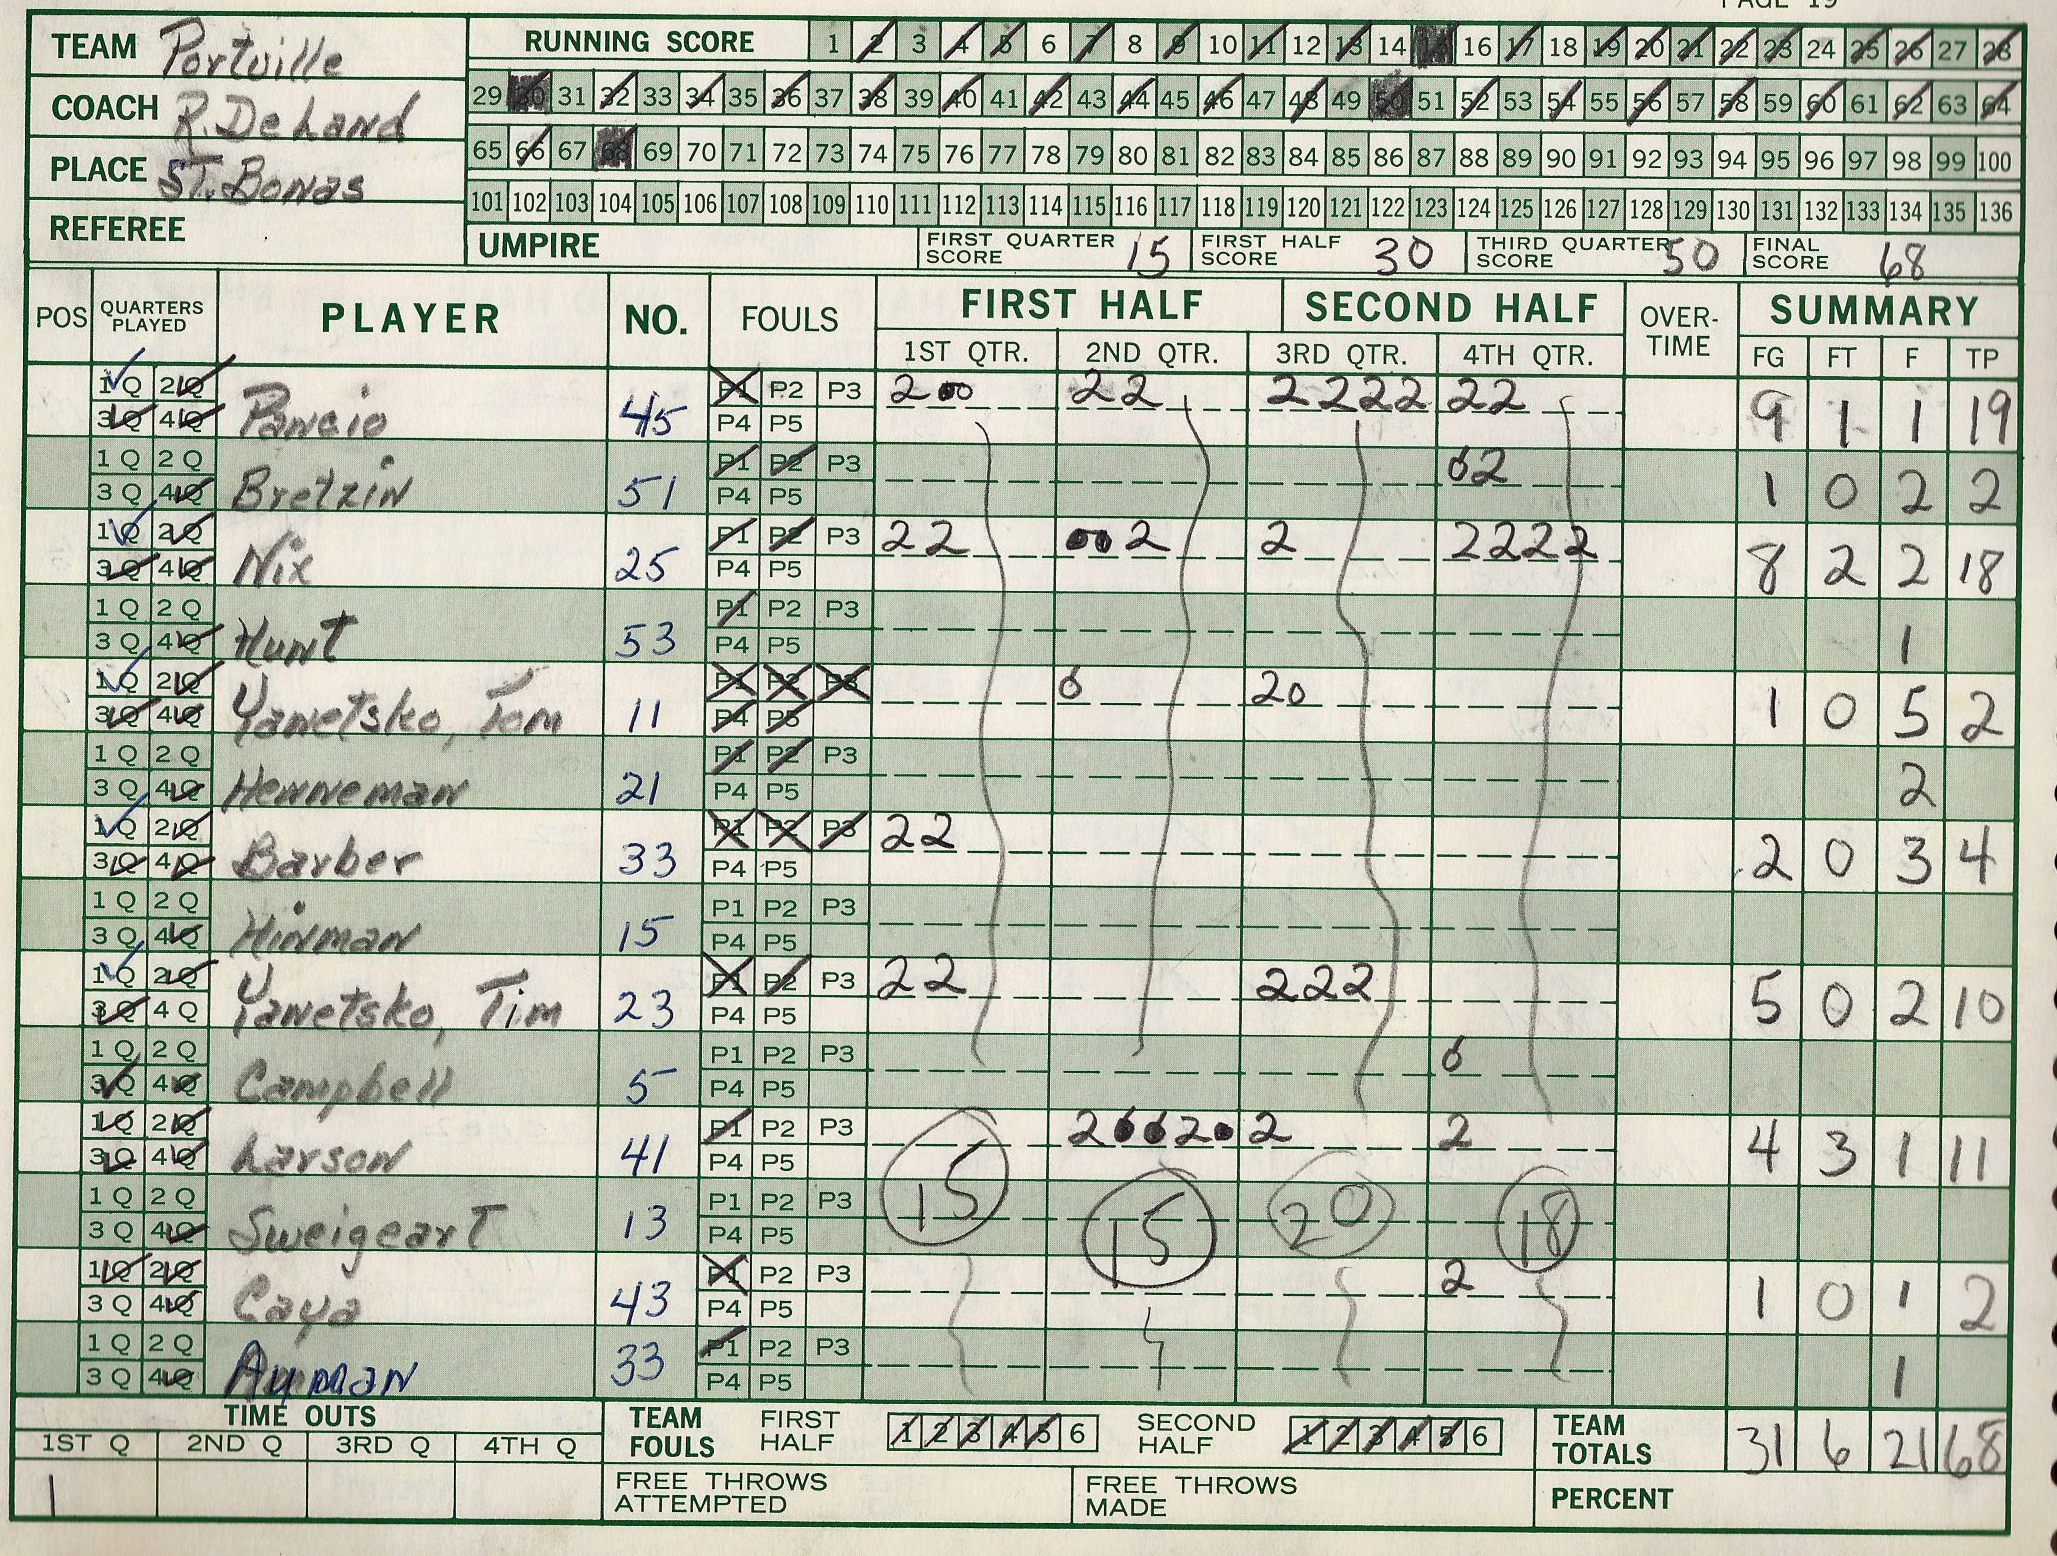 PAGE 19
TEAM Portville
COACH R. DeLand
PLACE ST. Bonas
REFEREE
RUNNING SCORE 1 2 3 4 5 6 7 8 9 10 11 12 13 14 15 16 17 18 19 20 21 22 23 24 25 26 27 28
29 30 31 32 33 34 35 36 37 38 39 40 41 42 43 44 45 46 47 48 49 50 51 52 53 54 55 56 57 58 59 60 61 62 63 64
65 66 67 68 69 70 71 72 73 74 75 76 77 78 79 80 81 82 83 84 85 86 87 88 89 90 91 92 93 94 95 96 97 98 99 100
101 102 103 104 105 106 107 108 109 110 111 112 113 114 115 116 117 118 119 120 121 122 123 124 125 126 127 128 129 130 131 132 133 134 135 136
UMPIRE FIRST QUARTER SCORE 15 FIRST HALF SCORE 30 THIRD QUARTER SCORE 50 FINAL SCORE 68
POS QUARTERS PLAYED PLAYER NO. FOULS FIRST HALF SECOND HALF OVER-TIME SUMMARY
1ST QTR. 2ND QTR. 3RD QTR. 4TH QTR. FG FT F TP
1Q 2Q P1 P2 P3 2 0 0 22 2222 22
3Q 4Q Pancio 45 P4 P5 9 1 1 19
1Q 2Q P1 P2 P3 02
3Q 4Q Bretzin 51 P4 P5 1 0 2 2
1Q 2Q P1 P2 P3 22 002 2 2222
3Q 4Q Nix 25 P4 P5 8 2 2 18
1Q 2Q P1 P2 P3
3Q 4Q Hunt 53 P4 P5 1
1Q 2Q P1 P2 P3 0 20
3Q 4Q Yanetsko, Tom 11 P4 P5 1 0 5 2
1Q 2Q P1 P2 P3
3Q 4Q Henneman 21 P4 P5 2
1Q 2Q P1 P2 P3 22
3Q 4Q Barber 33 P4 P5 2 0 3 4
1Q 2Q P1 P2 P3
3Q 4Q Hinman 15 P4 P5
1Q 2Q P1 P2 P3 22 222
3Q 4Q Yanetsko, Tim 23 P4 P5 5 0 2 10
1Q 2Q P1 P2 P3 0
3Q 4Q Campbell 5 P4 P5
1Q 2Q P1 P2 P3 20020 2 2
3Q 4Q Larson 41 P4 P5 4 3 1 11
1Q 2Q P1 P2 P3 15 15 20 18
3Q 4Q Sweigeart 13 P4 P5
1Q 2Q P1 P2 P3 2
3Q 4Q Caya 43 P4 P5 1 0 1 2
1Q 2Q P1 P2 P3
3Q 4Q Ayman 33 P4 P5 1
TIME OUTS TEAM FOULS FIRST HALF 1 2 3 4 5 6 SECOND HALF 1 2 3 4 5 6 TEAM TOTALS 31 6 21 68
1ST Q 2ND Q 3RD Q 4TH Q
1 FREE THROWS ATTEMPTED FREE THROWS MADE PERCENT